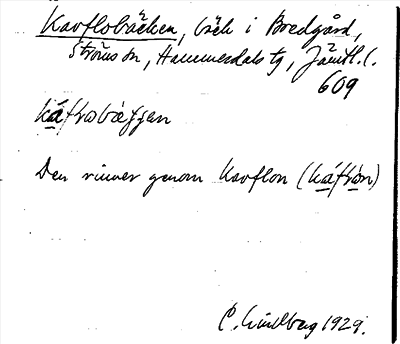 Kavflobäcken, bäck i Bredgård,
Ströms sn, Hammerdals tg, Jämtl. l.
609
Den rinner genom Kavflon (káfròn)
C. Lindberg 1929.